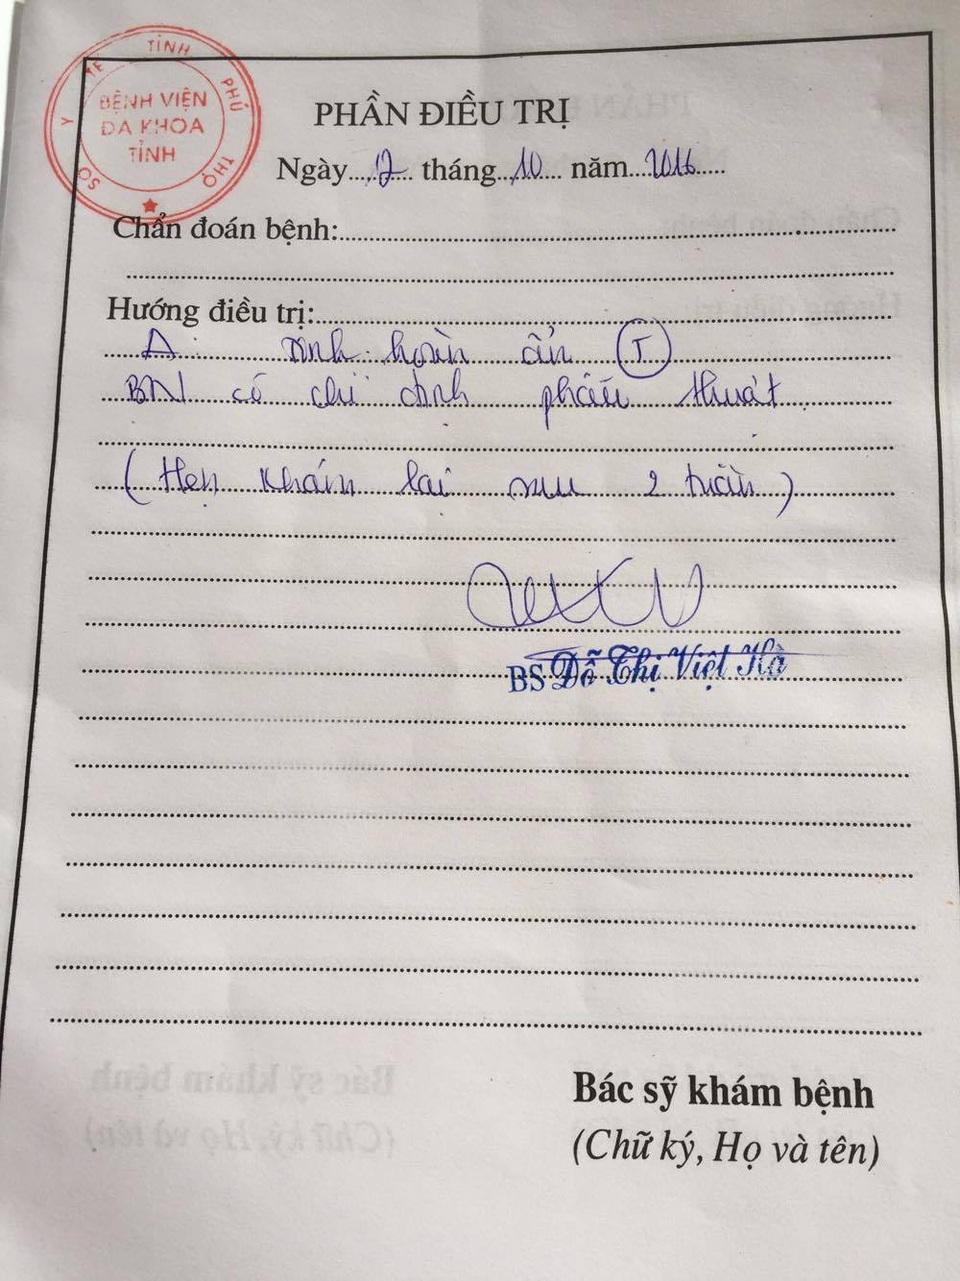 SỞ Y TẾ TỈNH PHÚ THỌ
BỆNH VIỆN
ĐA KHOA
TỈNH
PHẦN ĐIỀU TRỊ
Ngày 12 tháng 10 năm 2016
Chẩn đoán bệnh:
Hướng điều trị:
Δ: Tinh hoàn ẩn (T)
BN có chỉ định phẫu thuật
(Hẹn khám lại sau 2 tuần)
BS Đỗ Thị Việt Hà
Bác sỹ khám bệnh
(Chữ ký, Họ và tên)